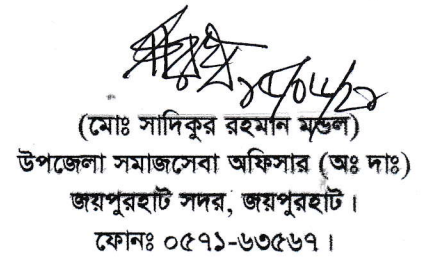 (মোঃ সাদিকুর রহমান মন্ডল)
উপজেলা সমাজসেবা অফিসার (অঃ দাঃ)
জয়পুরহাট সদর, জয়পুরহাট।
ফোনঃ ০৫৭১-৬৩৫৬৭।